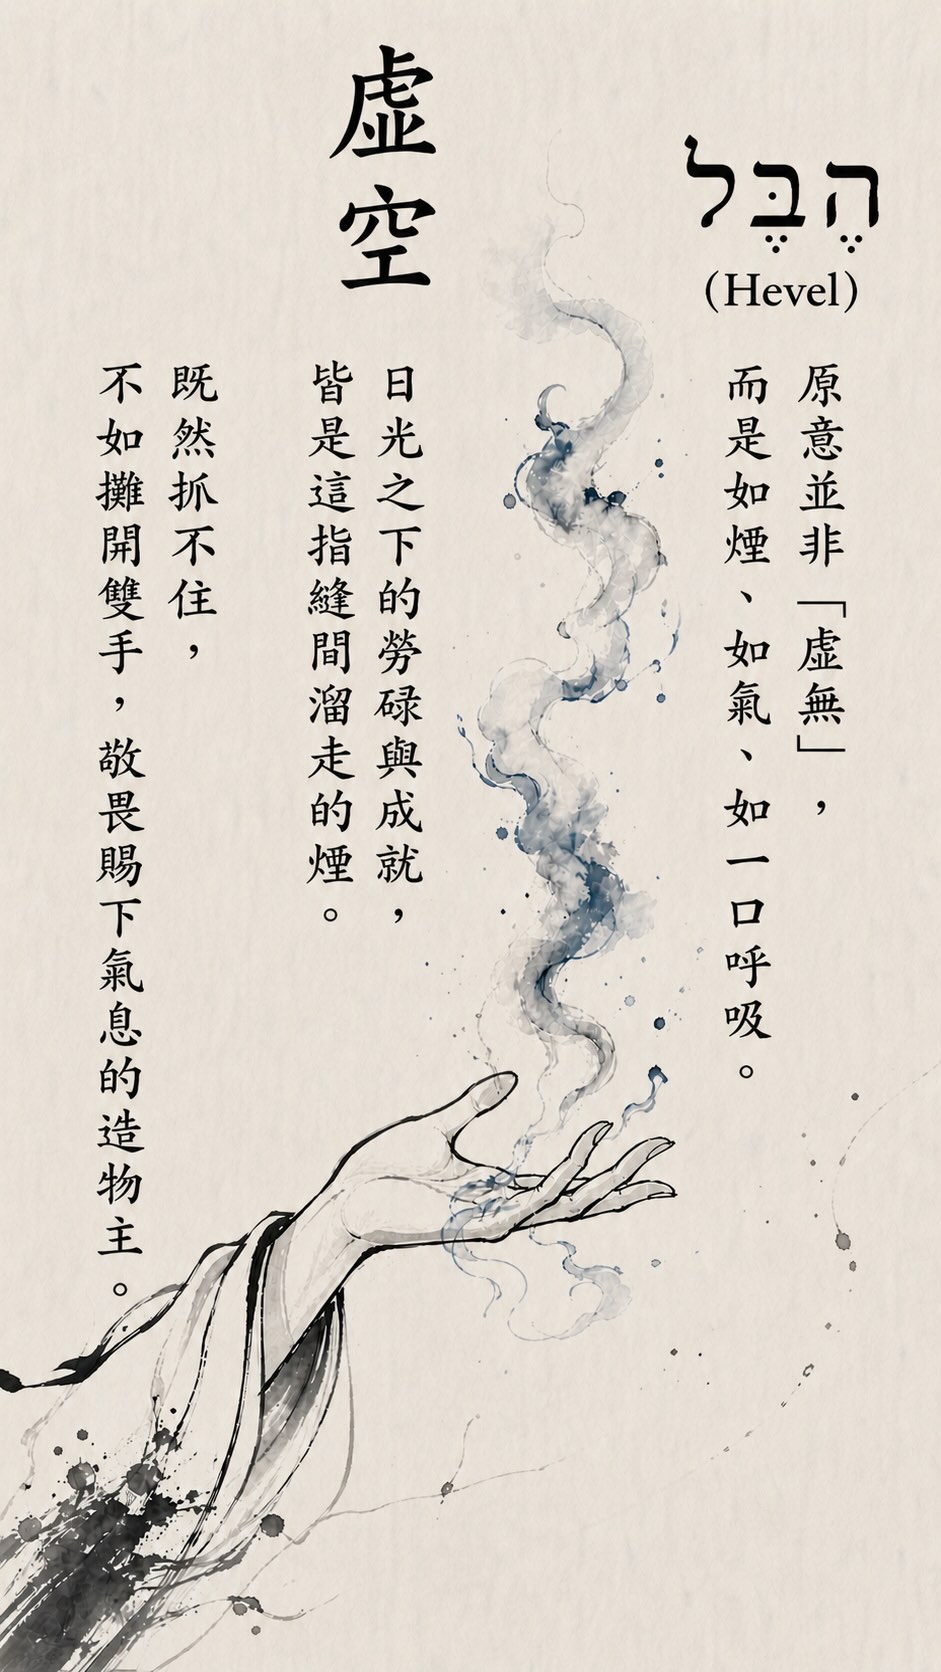 虛空
הֶבֶּל
(Hevel)
原意並非「虛無」，
而是如煙、如氣、如一口呼吸。
日光之下的勞碌與成就，
皆是這指縫間溜走的煙。
既然抓不住，
不如攤開雙手，敬畏賜下氣息的造物主。